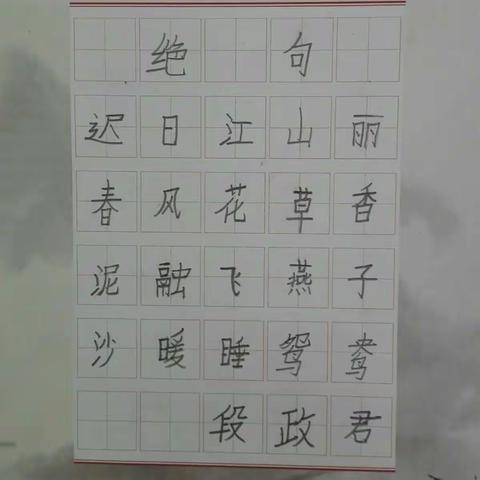 绝句
迟日江山丽
春风花草香
泥融飞燕子
沙暖睡鸳鸯
段政君